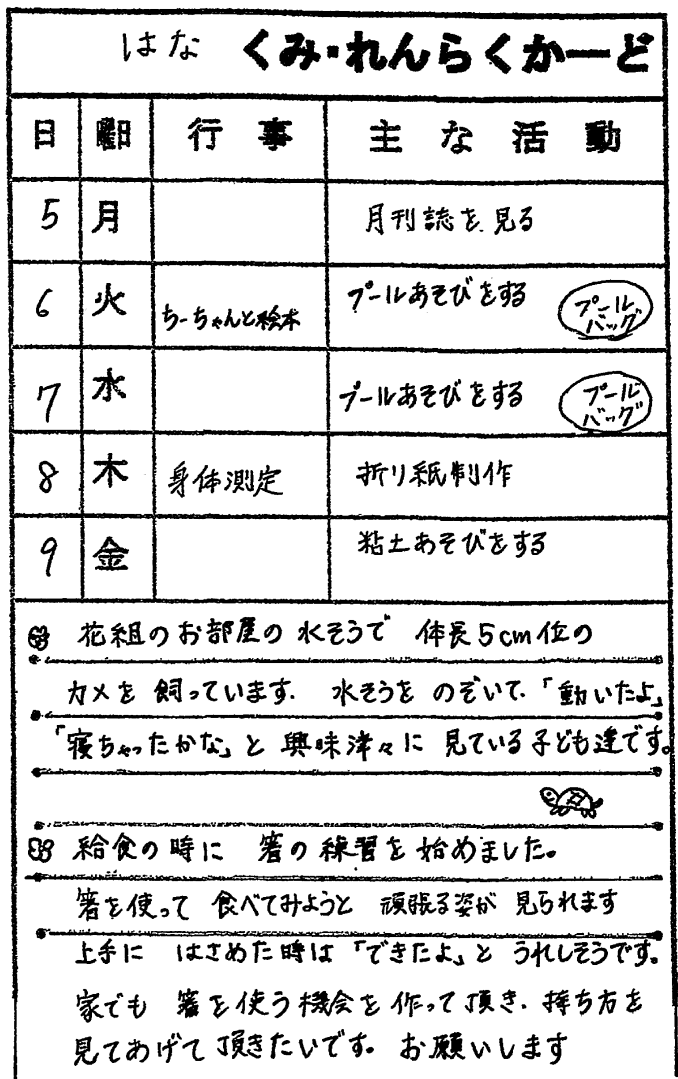 はな くみ・れんらくかーど
日 曜日 行事 主な活動
5 月 月刊誌を見る
6 火 ちーちゃんと絵本 プールあそびをする プールバッグ
7 水 プールあそびをする プールバッグ
8 木 身体測定 折り紙制作
9 金 粘土あそびをする
花組のお部屋の水そうで 体長5cm位の
カメを飼っています. 水そうをのぞいて、「動いたよ」
「寝ちゃったかな」と興味津々に見ている子ども達です。
給食の時に 箸の練習を始めました。
箸を使って 食べてみようと 頑張る姿が 見られます
上手に はさめた時は「できたよ」と うれしそうです。
家でも 箸を使う機会を作って頂き、持ち方を
見てあげて頂きたいです。お願いします